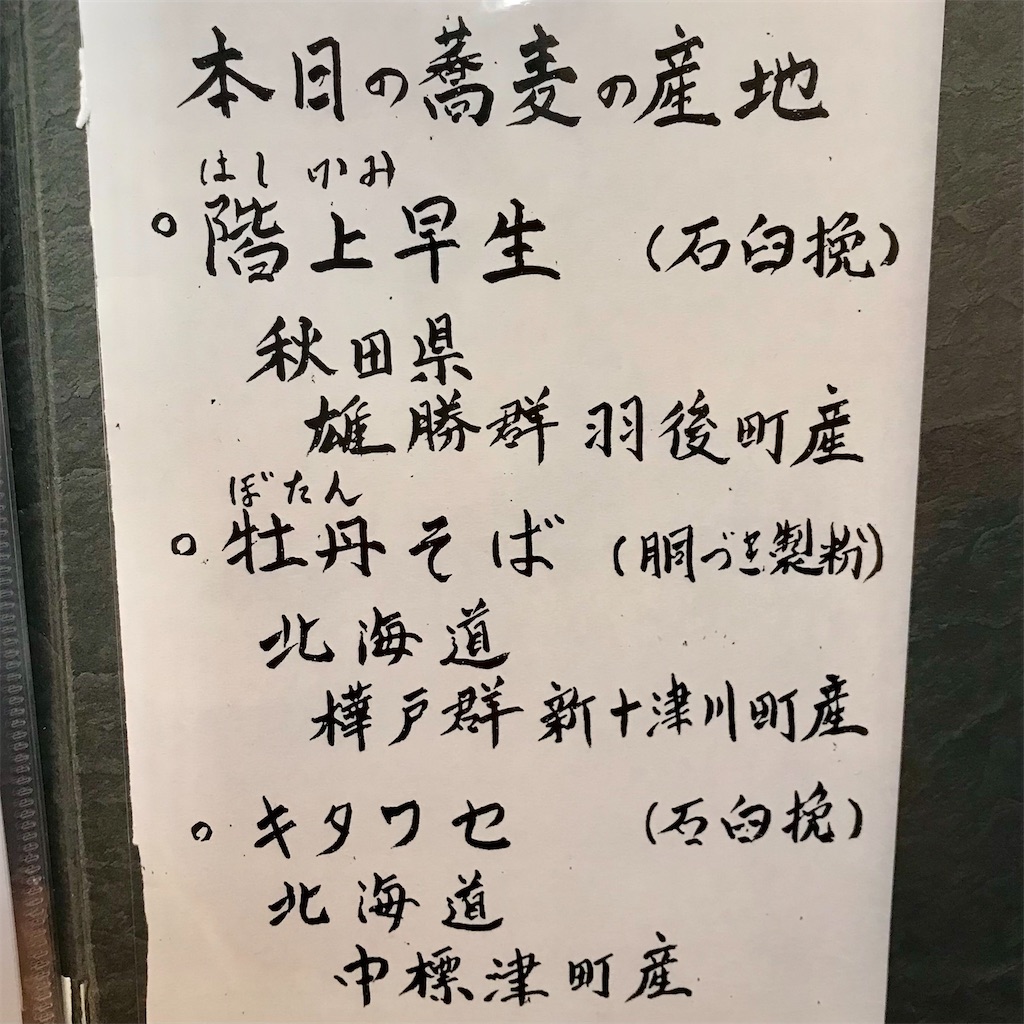 本日の蕎麦の産地
はしかみ
○階上早生 (石臼挽)
秋田県
雄勝群羽後町産
ぼたん
○牡丹そば (胴づき製粉)
北海道
樺戸群新十津川町産
○キタワセ (石臼挽)
北海道
中標津町産